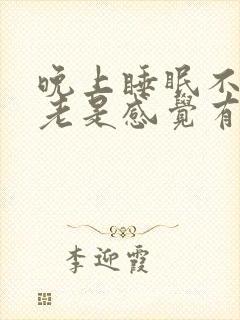 晚上睡眠不
老是感覺有
李迎霞